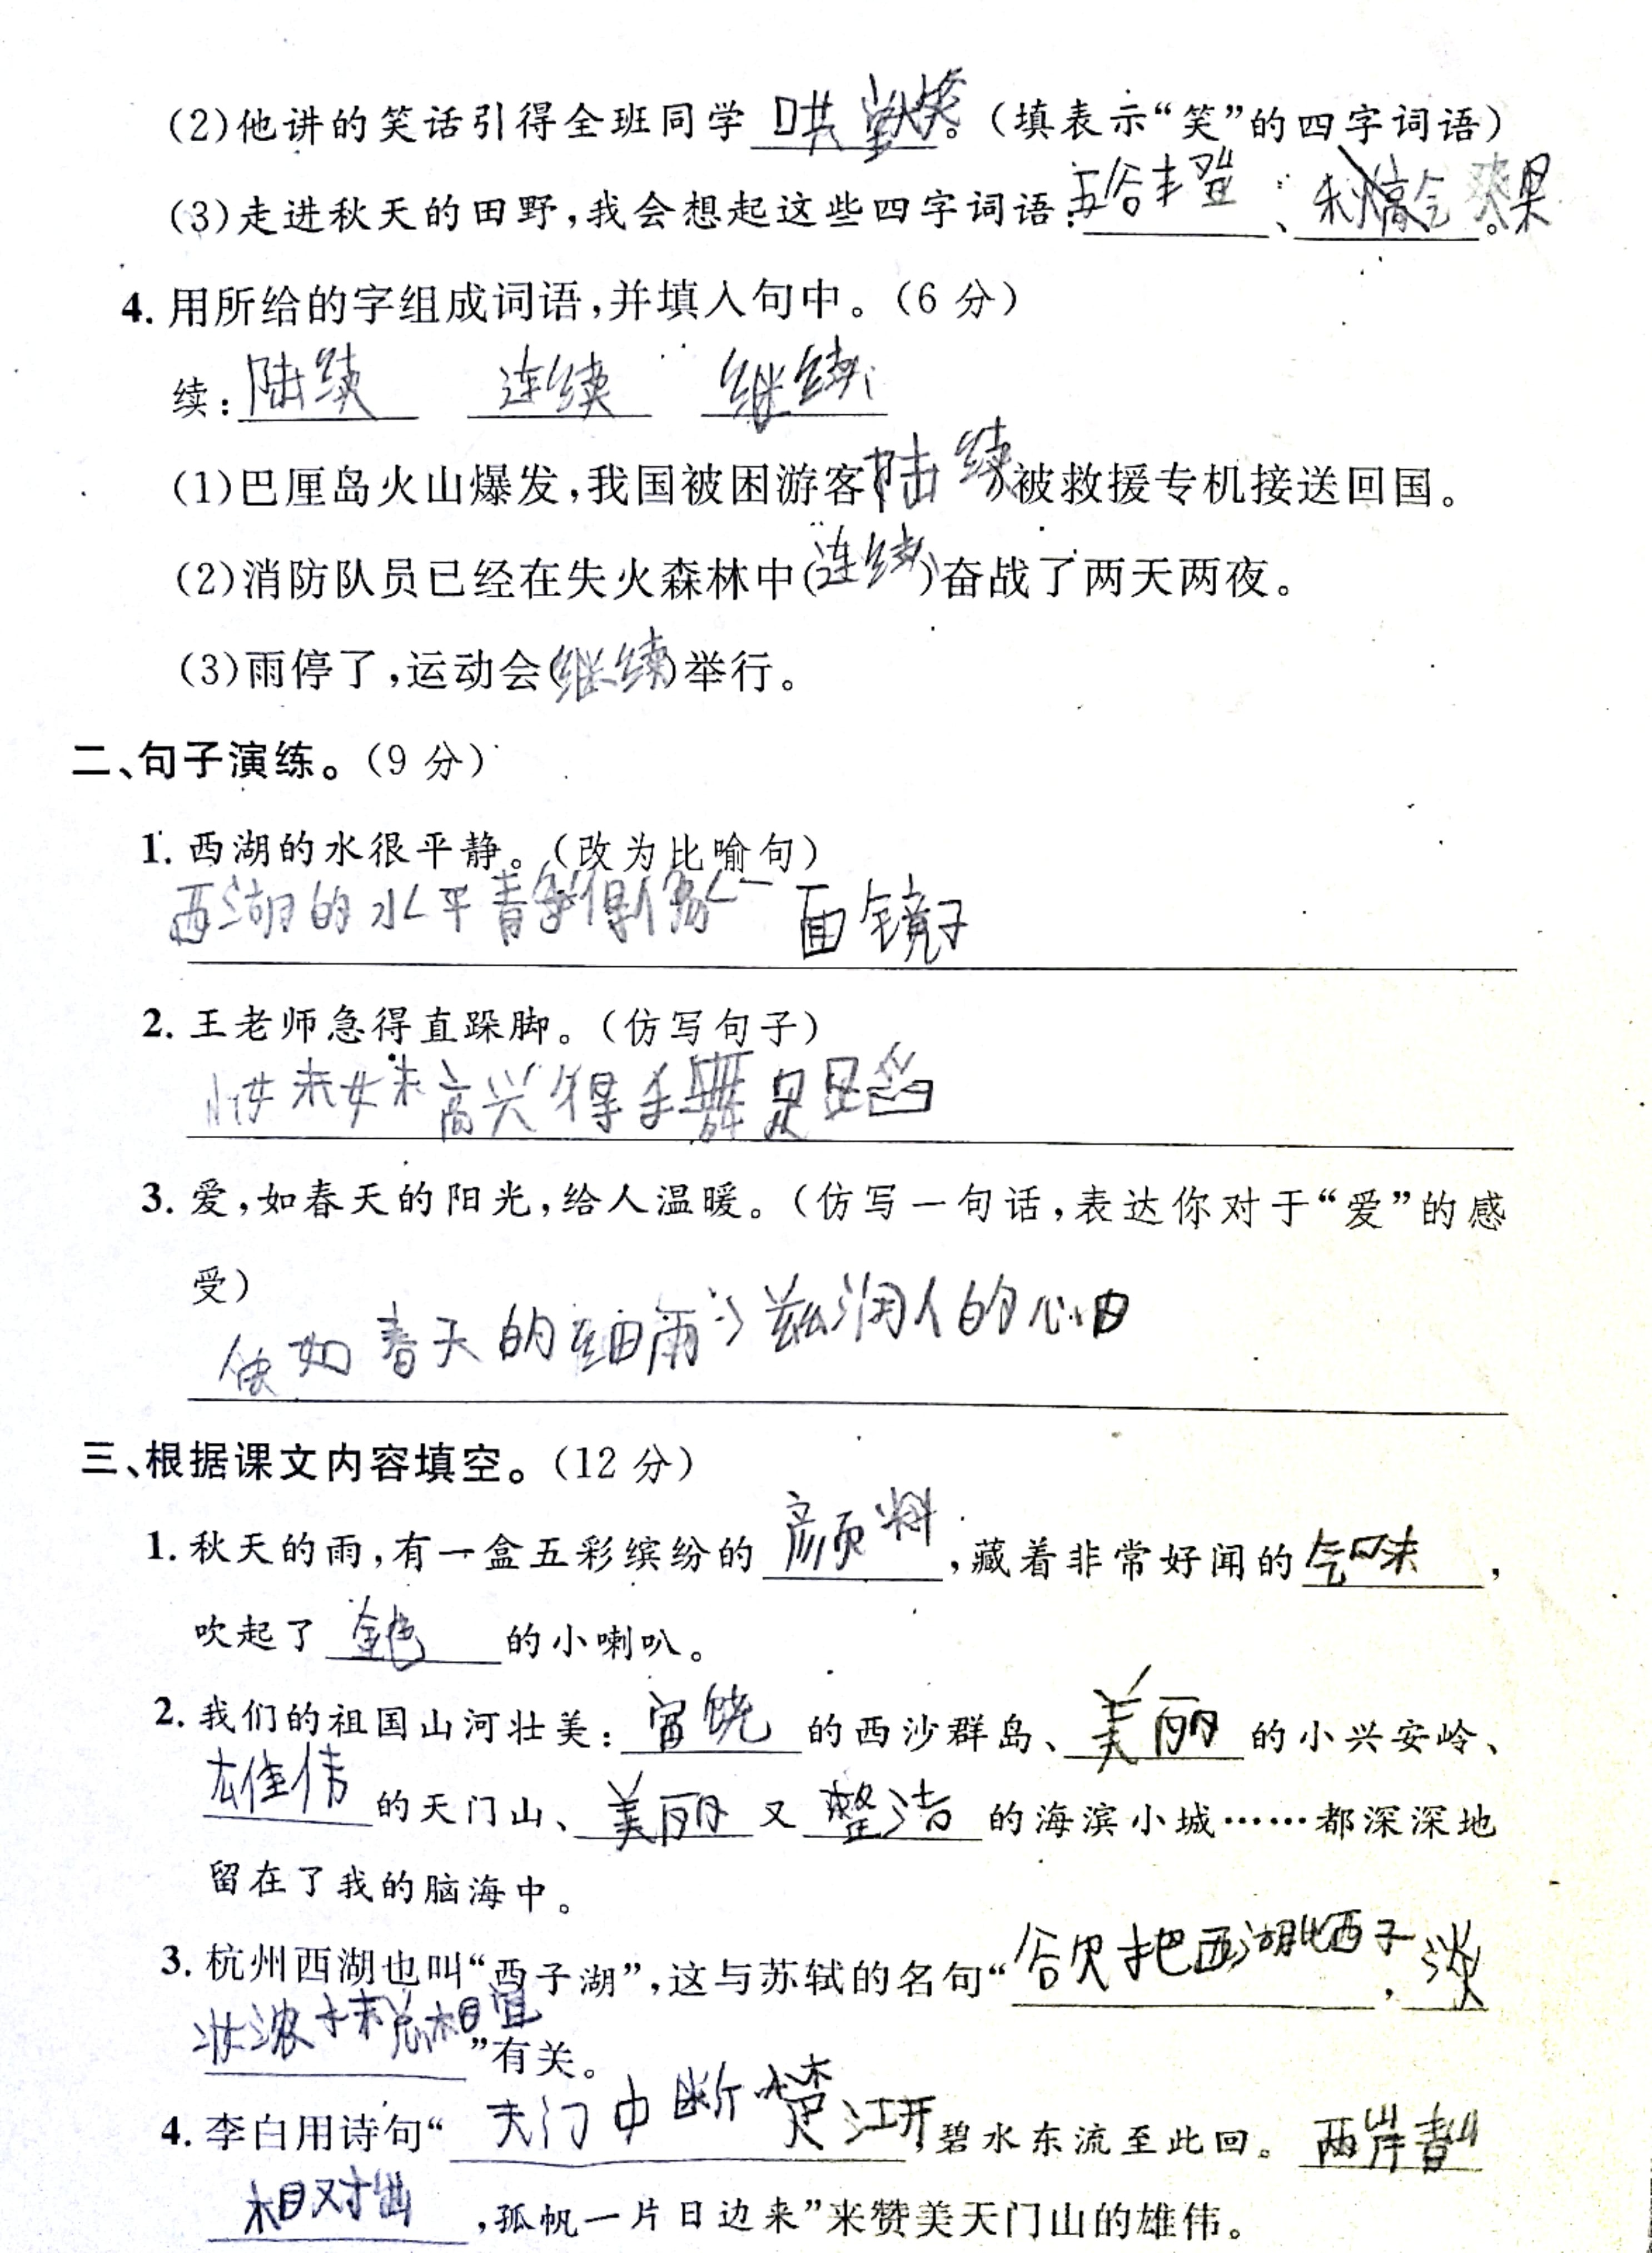 (2)他讲的笑话引得全班同学 哄堂大笑。(填表示“笑”的四字词语)
(3)走进秋天的田野,我会想起这些四字词语:五谷丰登、秋高气爽。果
4. 用所给的字组成词语,并填入句中。(6 分)
续:陆续 连续 继续
(1)巴厘岛火山爆发,我国被困游客(陆续)被救援专机接送回国。
(2)消防队员已经在失火森林中(连续)奋战了两天两夜。
(3)雨停了,运动会(继续)举行。
二、句子演练。(9 分)
1. 西湖的水很平静。(改为比喻句)
西湖的水平静得像一面镜子
2. 王老师急得直跺脚。(仿写句子)
小妹妹高兴得手舞足蹈
3. 爱,如春天的阳光,给人温暖。(仿写一句话,表达你对于“爱”的感
受)
如春天的细雨,滋润人的心田
三、根据课文内容填空。(12 分)
1. 秋天的雨,有一盒五彩缤纷的 颜料 ,藏着非常好闻的 气味 ,
吹起了 金色 的小喇叭。
2. 我们的祖国山河壮美: 富饶 的西沙群岛、 美丽 的小兴安岭、
雄伟 的天门山、 美丽 又 整洁 的海滨小城……都深深地
留在了我的脑海中。
3. 杭州西湖也叫“西子湖”,这与苏轼的名句“欲把西湖比西子,淡
妆浓抹总相宜”有关。
4. 李白用诗句“ 天门中断楚江开,碧水东流至此回。 两岸青山
相对出 ,孤帆一片日边来”来赞美天门山的雄伟。